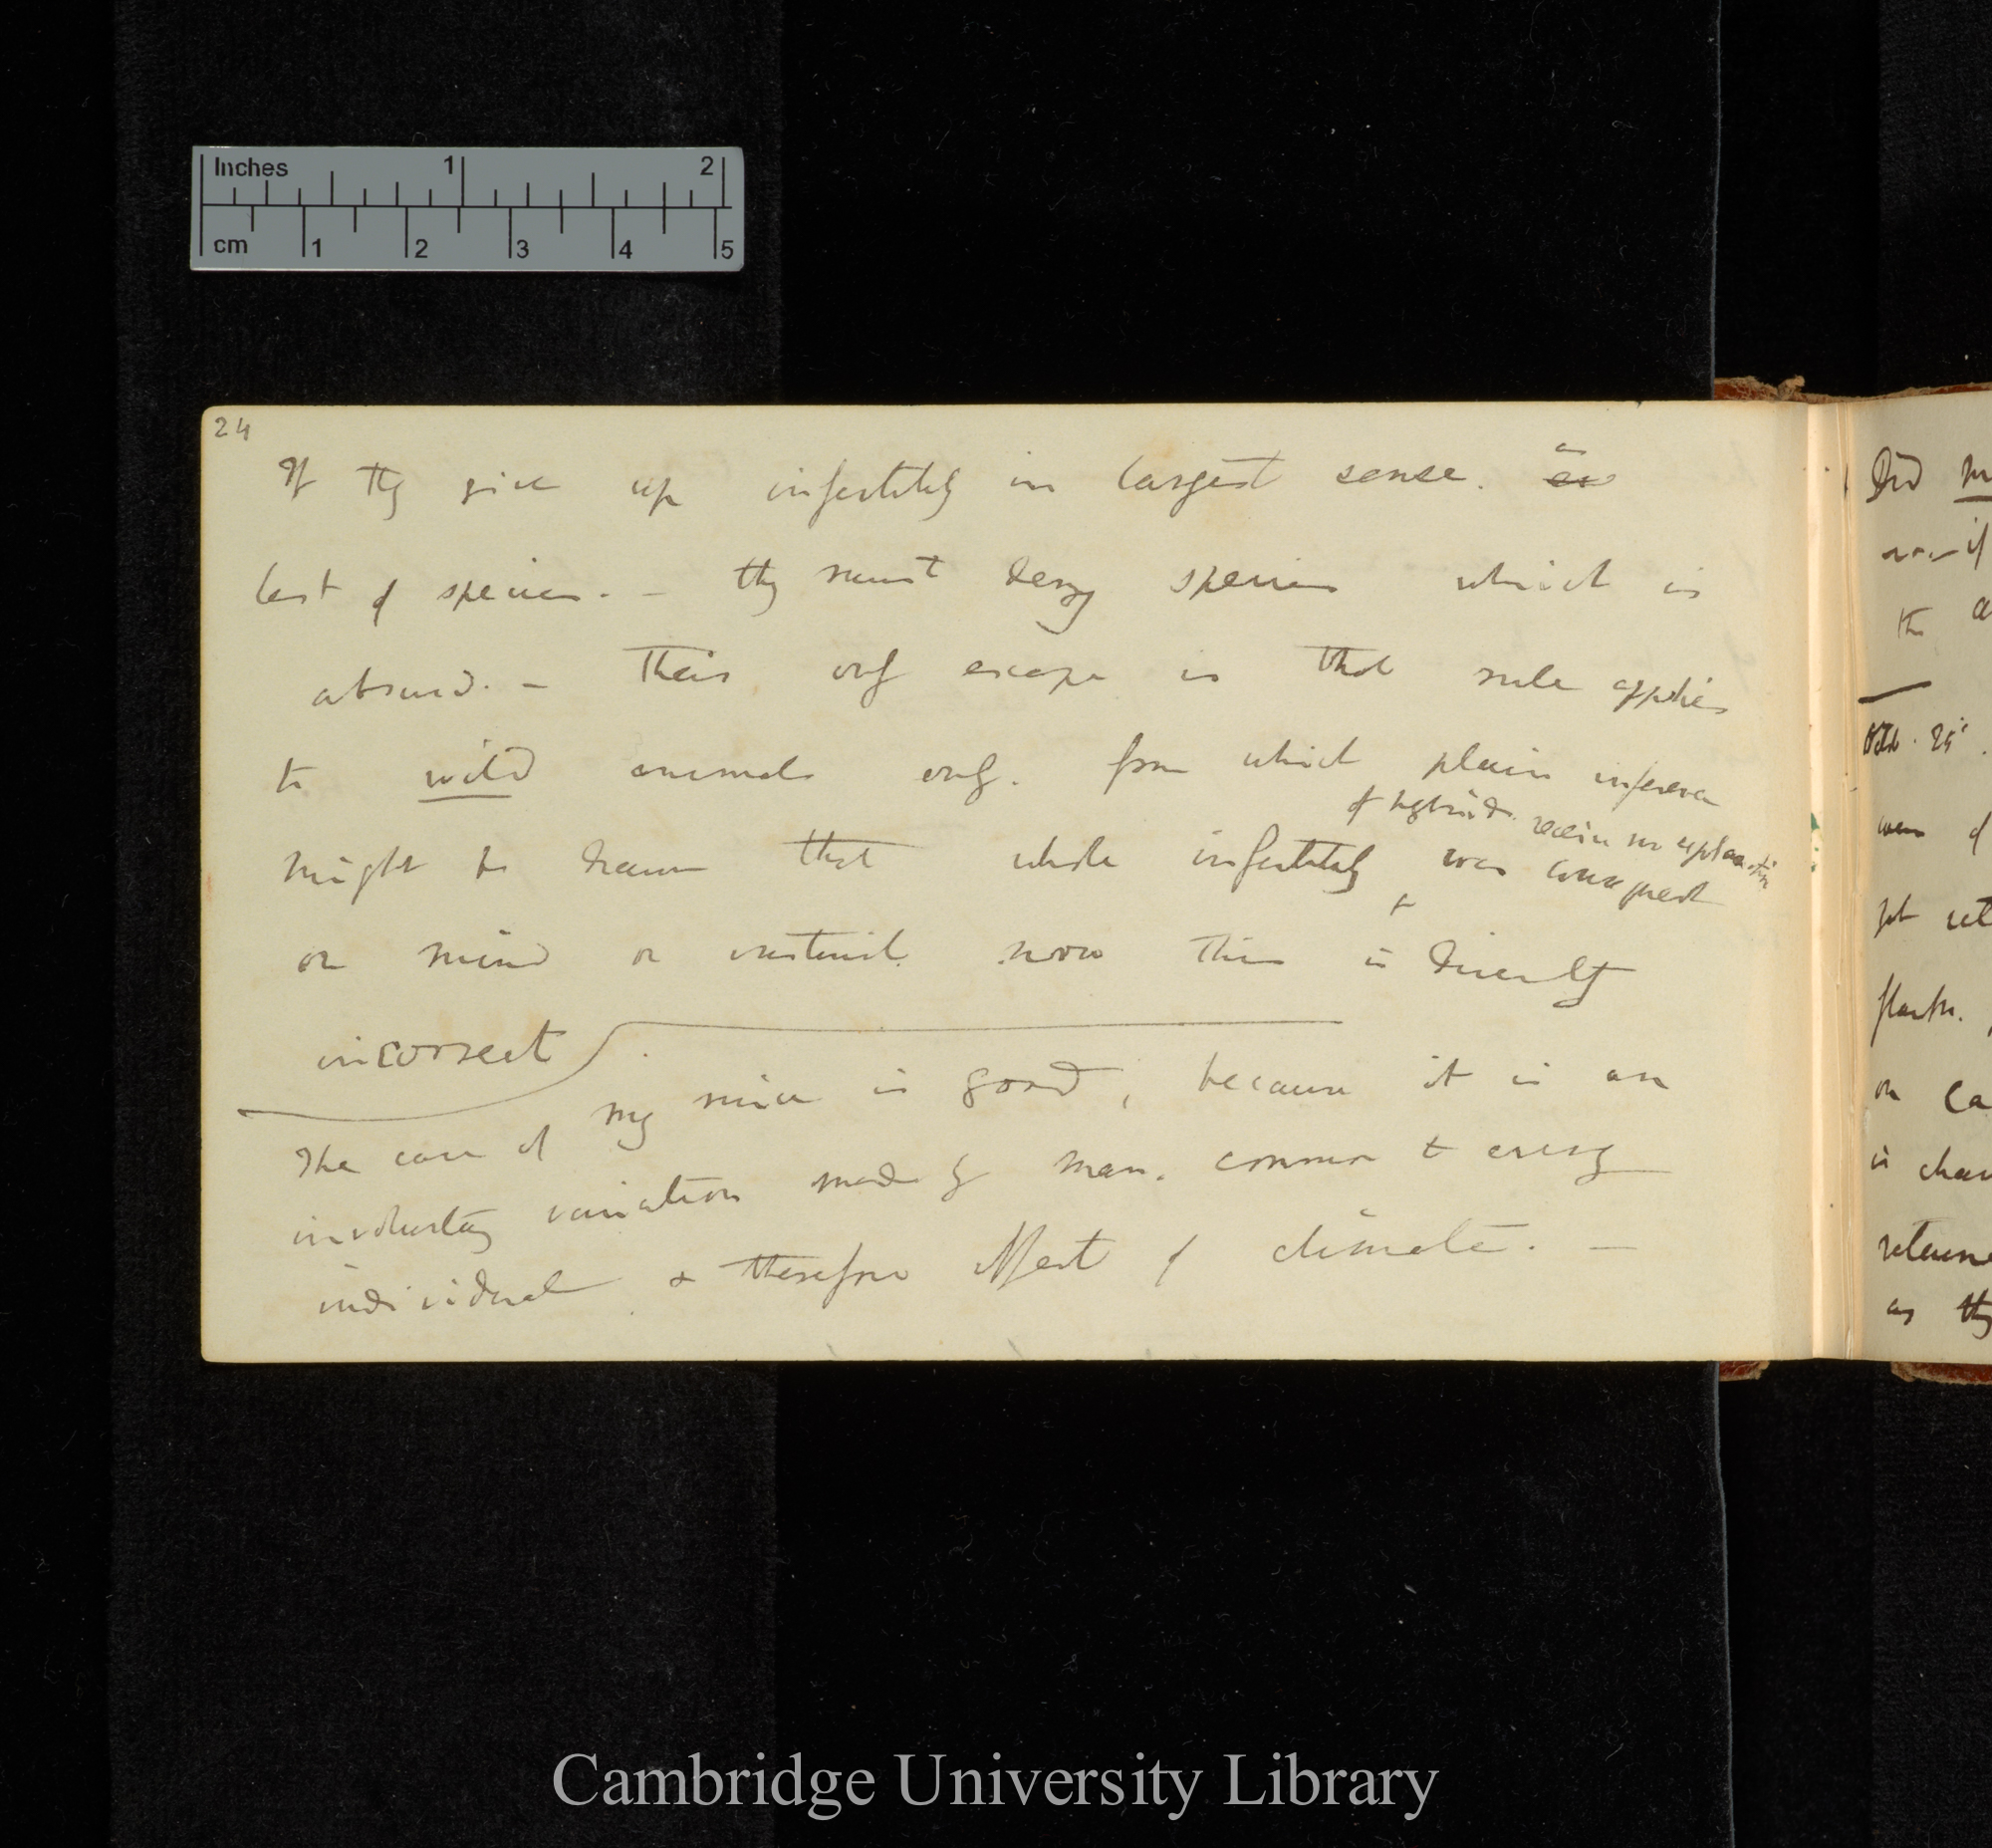 Inches 1 2
cm 1 2 3 4 5
24
If they give up infertility in largest sense. as
test of species. — they must deny species which is
absurd. — Their only escape is that rule applies
to wild animals only. from which plain inference
of hybrids. receive no explanation
might be drawn that whole infertility was consequent
on mind or instinct. now this is directly
incorrect
The case of my mice is good, because it is an
involuntary variation made by man. common to every
individual & therefore effect of climate. —
Did
now if
the
Octb. 25th.
were of
flowers.
on
is
as they
Cambridge University Library